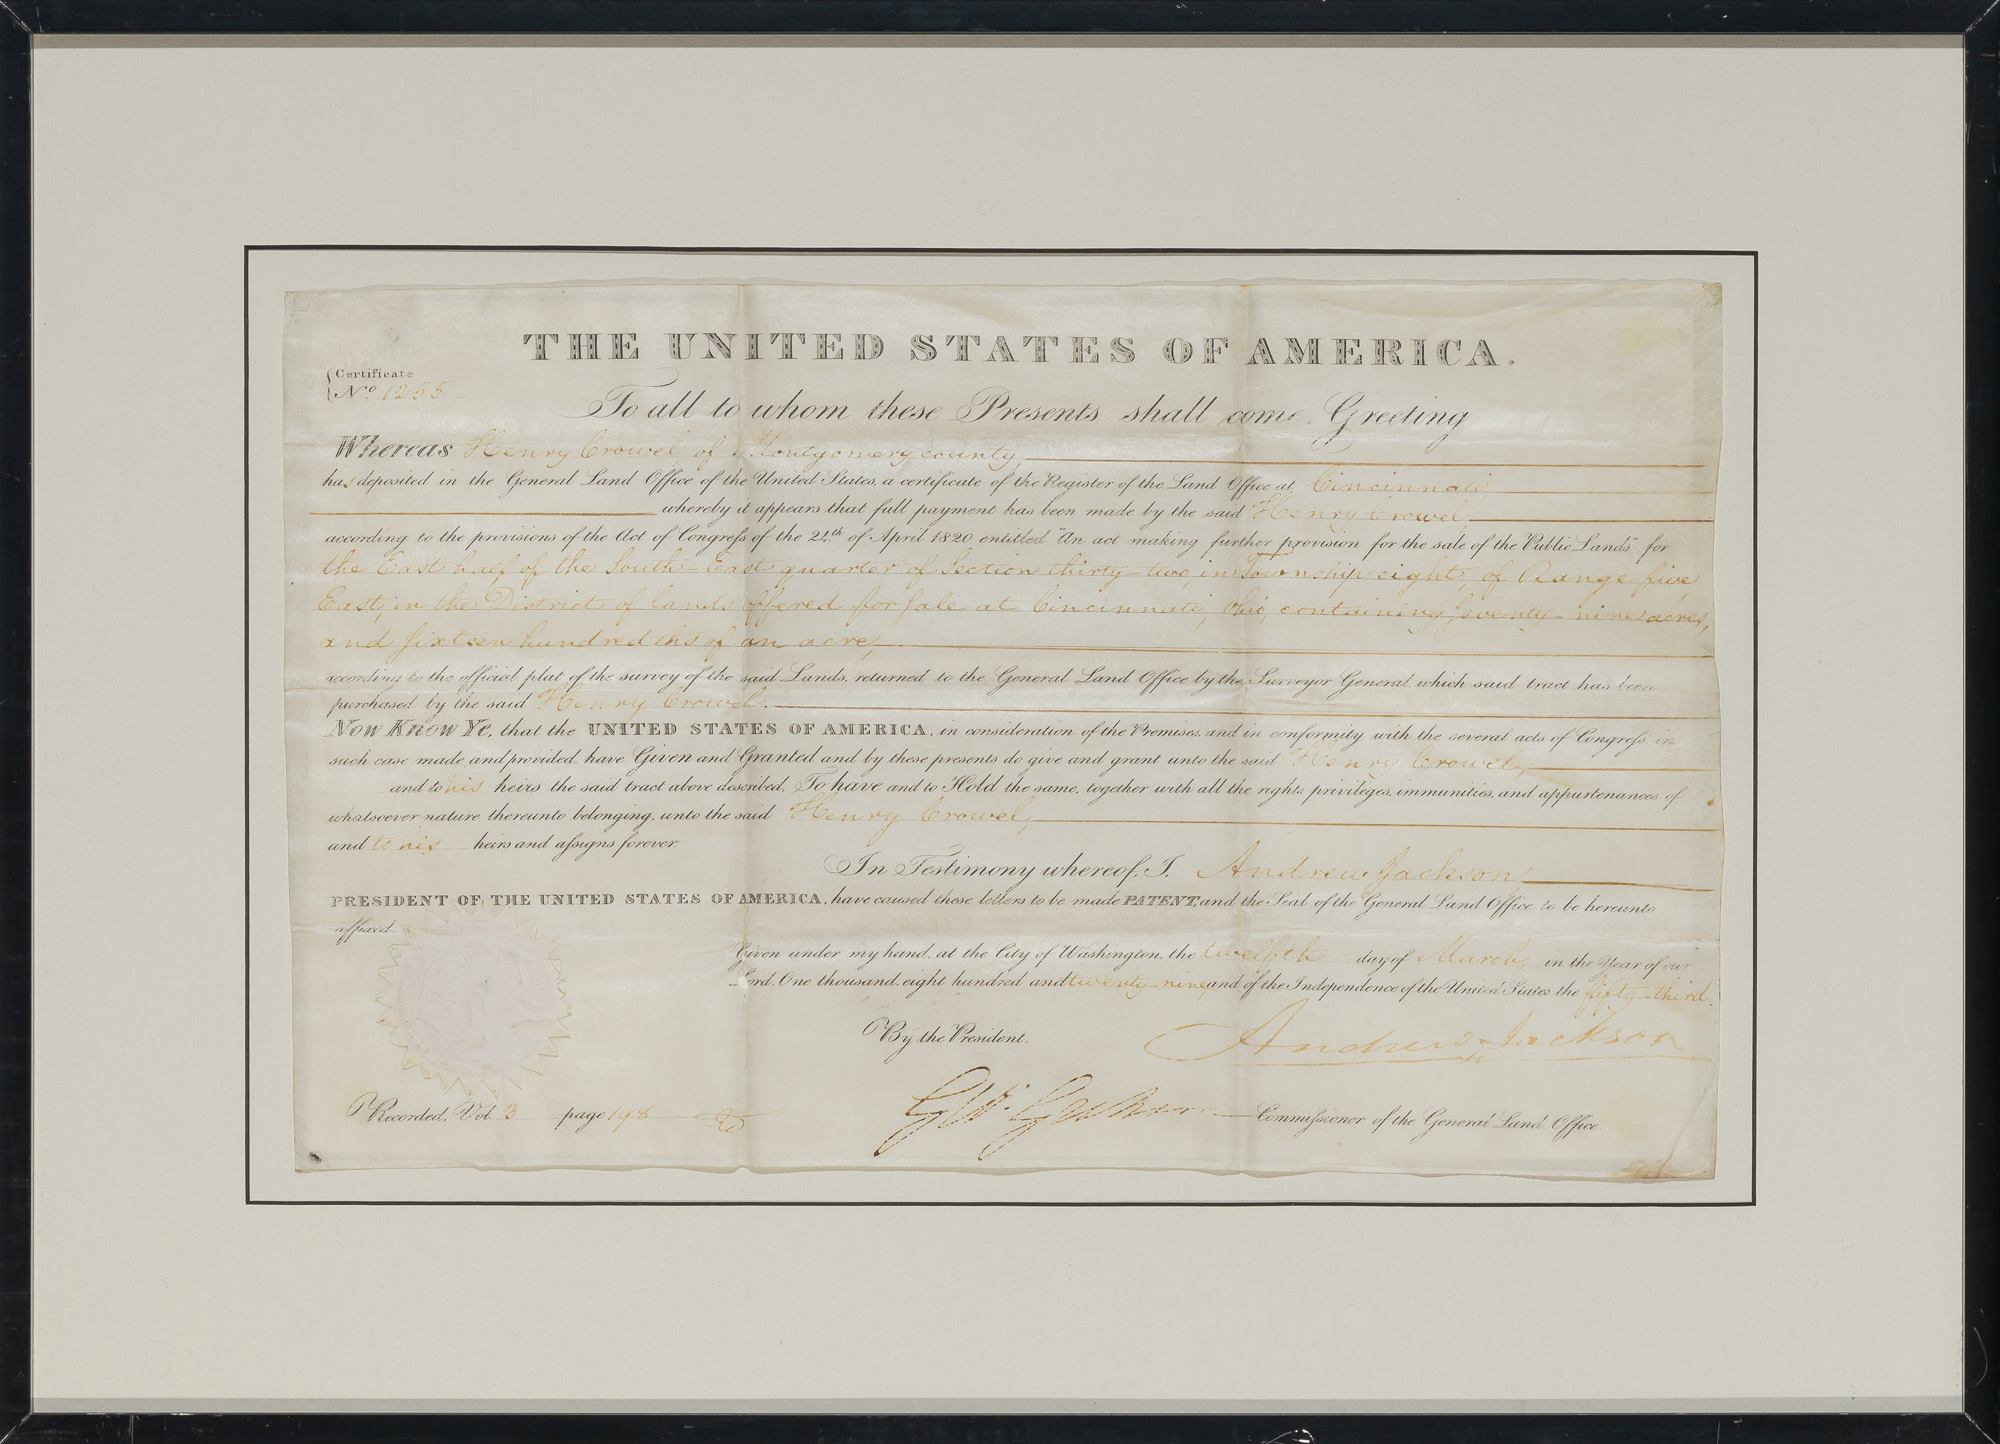 THE UNITED STATES OF AMERICA.
Certificate
No. 1255
To all to whom these Presents shall come, Greeting
Whereas Henry Crowel, of Montgomery county,
has deposited in the General Land Office of the United States, a certificate of the Register of the Land Office at Cincinnati,
whereby it appears that full payment has been made by the said Henry Crowel,
according to the provisions of the Act of Congress of the 24th of April 1820 entitled "An act making further provision for the sale of the Public Lands" for
the East half of the South-East quarter of Section thirty-two, in Township eight, of Range five,
East, in the District of lands offered for sale at Cincinnati, Ohio, containing seventy-nine acres,
and sixteen hundredths of an acre,
according to the official plat of the survey of the said Lands, returned to the General Land Office by the Surveyor General which said tract has been
purchased by the said Henry Crowel.
Now Know Ye, that the UNITED STATES OF AMERICA, in consideration of the Premises, and in conformity with the several acts of Congress, in
such case made and provided, have Given and Granted and by these presents do give and grant unto the said Henry Crowel,
and to his heirs the said tract above described, To have and to Hold the same, together with all the rights privileges, immunities, and appurtenances of
whatsoever nature, thereunto belonging, unto the said Henry Crowel,
and to his heirs and assigns forever.
In Testimony whereof, I, Andrew Jackson,
PRESIDENT OF THE UNITED STATES OF AMERICA, have caused these letters to be made PATENT, and the Seal of the General Land Office to be hereunto
affixed.
Given under my hand, at the City of Washington, the twelfth day of March, in the Year of our
Lord, One thousand, eight hundred and twenty-nine and of the Independence of the United States the fifty-third.
By the President.
Andrew Jackson
Geo: Graham Commissioner of the General Land Office.
Recorded, Vol. 3 page 198